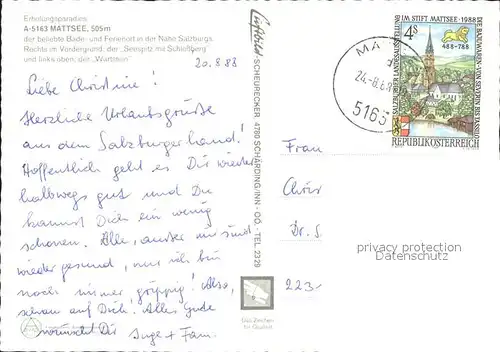 Erholungsparadies
A-5163 MATTSEE, 505m
der beliebte Bade- und Ferienort in der Nähe Salzburgs.
Rechts im Vordergrund: der „Seespitz mit Schloßberg"
und links oben: der „Wartstein"
20.8.88
Liebe Christine!
Herzliche Urlaubsgrüße
aus dem Salzburgerland!
Hoffentlich geht es Dir wieder
halbwegs gut und Du
kannst Dich ein wenig
schonen. Alle, außer mir sind
wieder gesund, nur ich bin
noch immer grippig! Also,
schau auf Dich. Alles Gute
wünscht Dir Inge + Fam.
Luftbild SCHEURECKER, 4780 SCHÄRDING/INN - OÖ. - TEL. 2329
Das Zeichen
für Qualität
MA
24.-8.88
5163
4S
SALZBURGER LANDESAUSSTELLUNG IM STIFT MATTSEE · 1988
DIE BAJUWAREN · VON SEVERIN BIS TASSILO
488-788
REPUBLIK ÖSTERREICH
Frau
Chris
Dr. S
223.-
privacy protection
Datenschutz